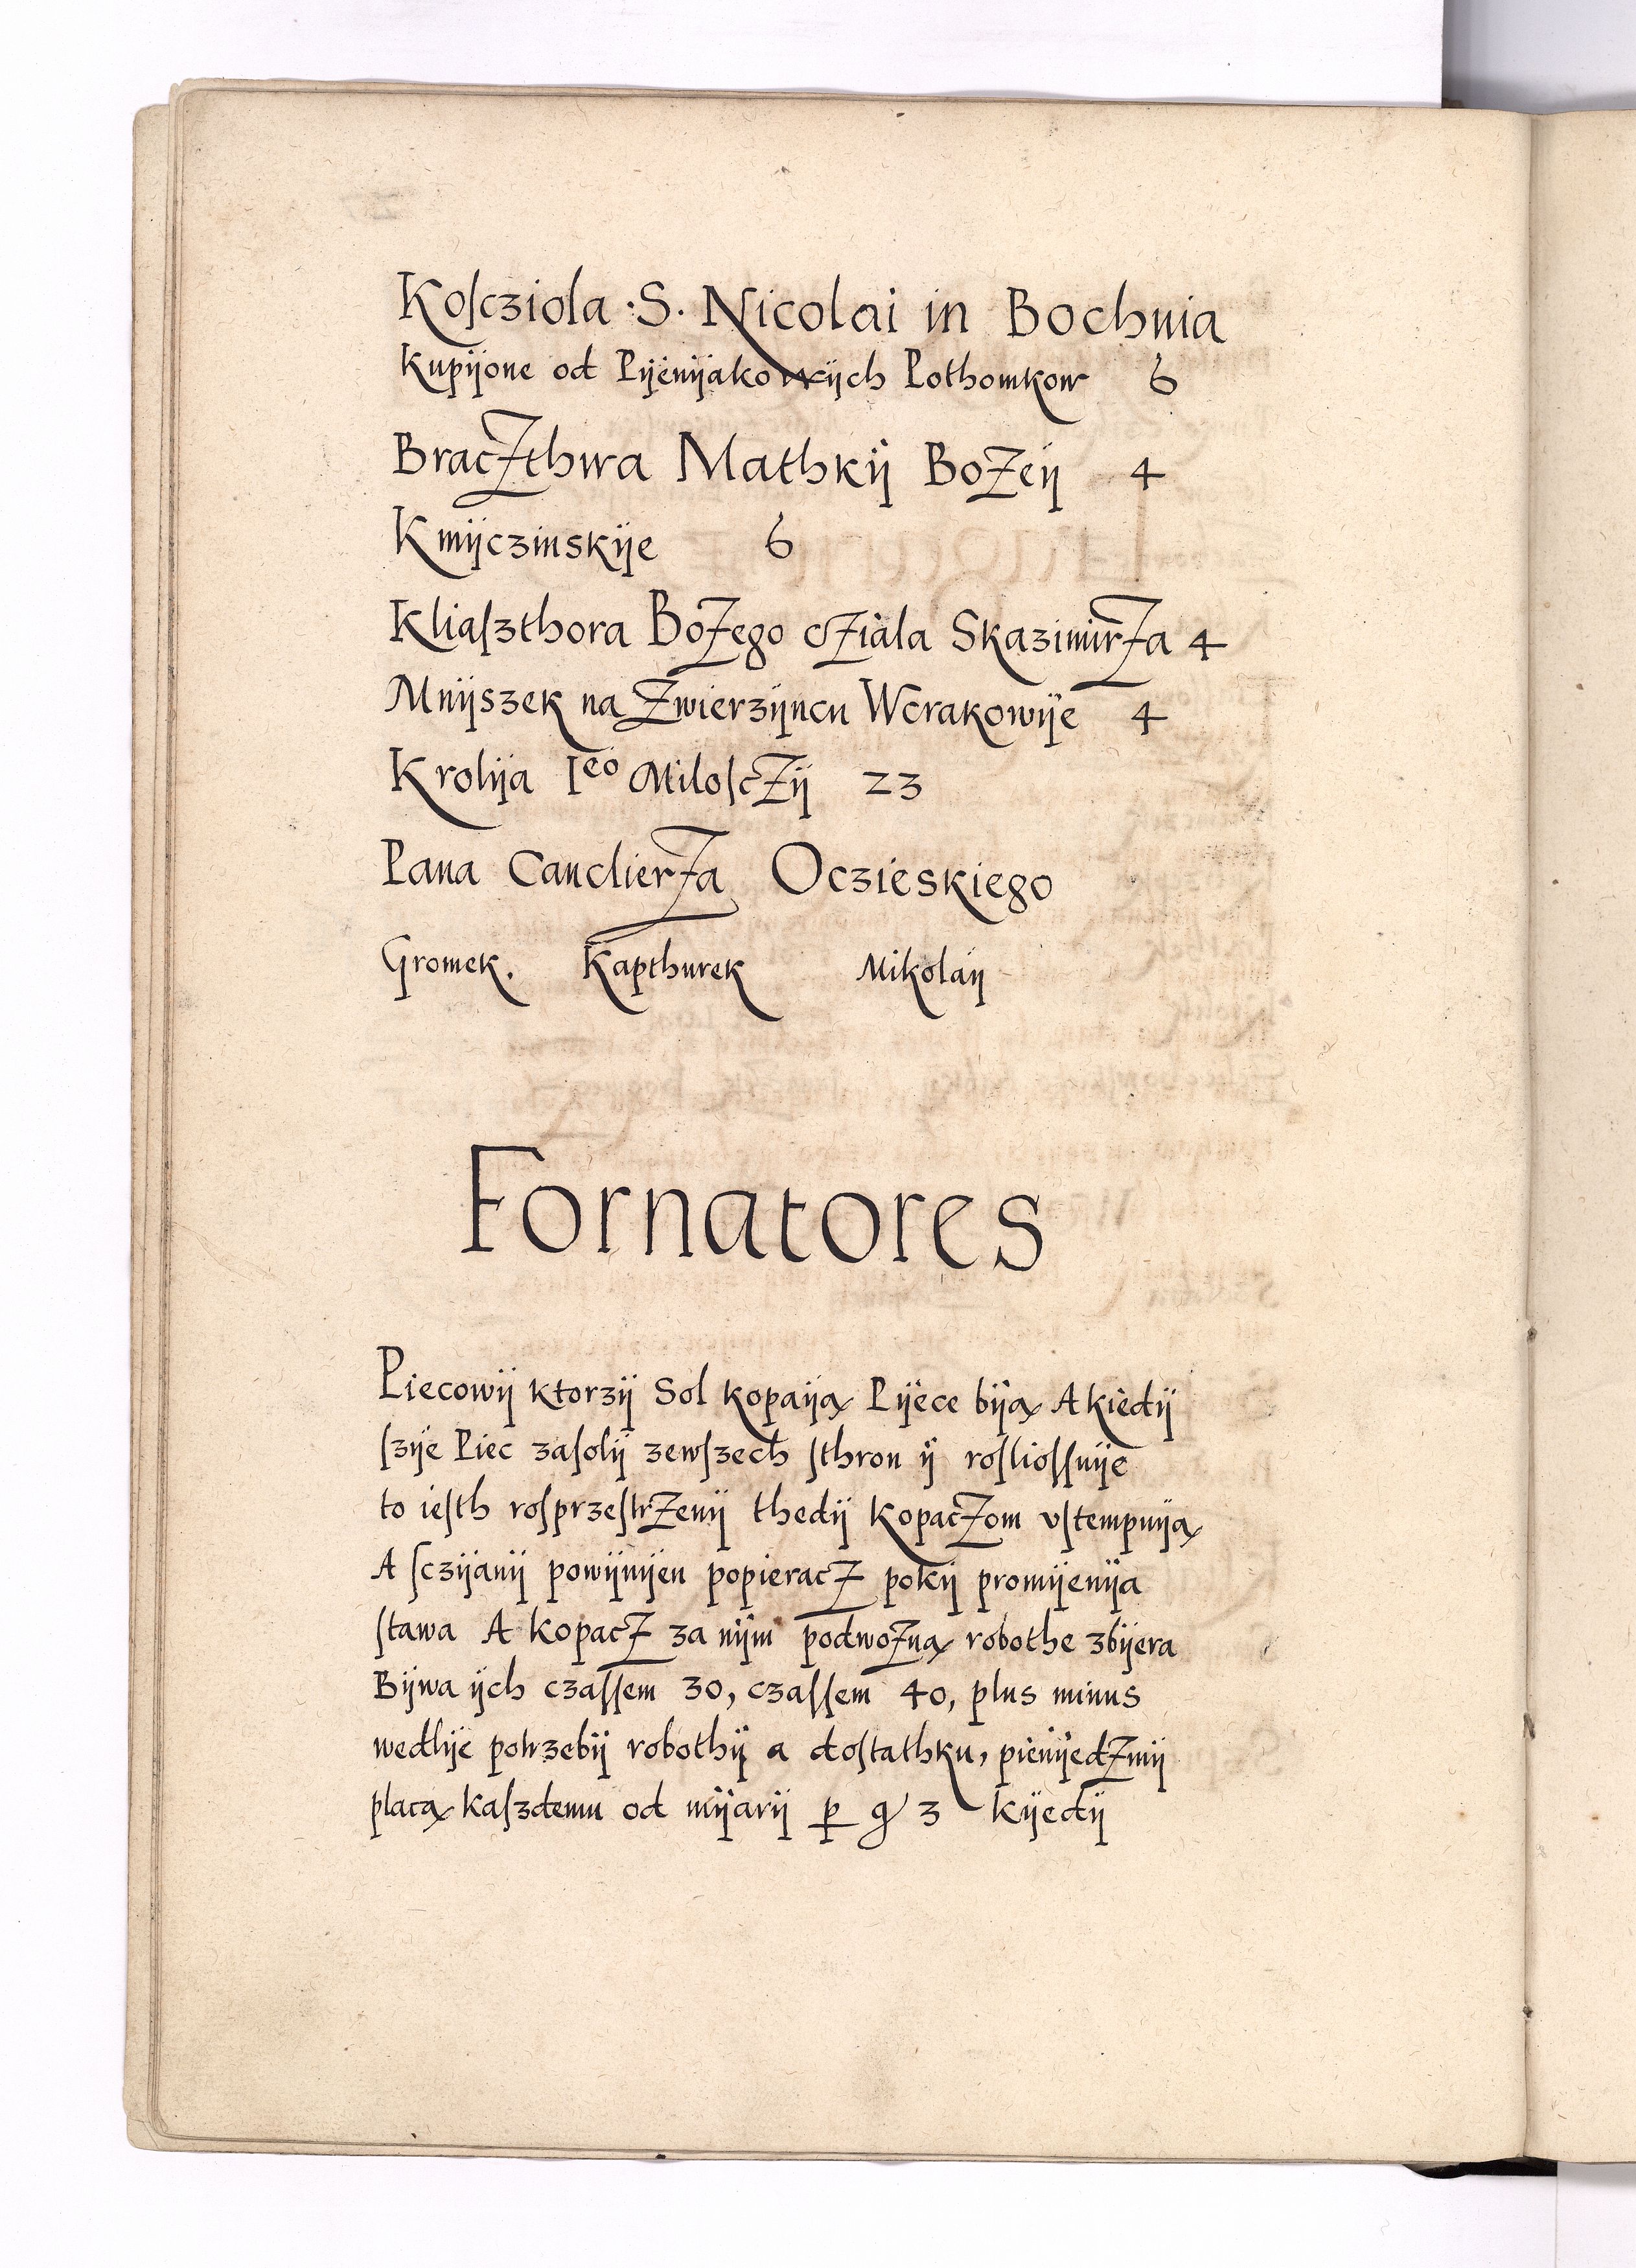 Koſcziola ·S. Nicolai in Bochnia
Kupijone od Pijenijakowijch Pothomkow 6
Braczthwa Mathkij Bozeij 4
Kmijczinskije 6
Kliaſzthora Bozego cziala Skazimirza 4
Mnijszek na Zwierzijncu Wcrakowije 4
Krolija Ieo Miloſczij 23
Pana Canclierza Oczieskiego
Gromek. Kapthurek Mikolaij
Fornatores
Piecowij ktorzij Sol kopaiją Pijece biją A kiedij
ſzije Piec zaſolij zewſzech ſthron ij roſlioſſnije
to ieſth roſprzeſtrzenij thedij kopaczom vſtempniją
A ſczijanij powijnijen popieracz pokij promijenija
ſtawa A kopacz za nijm podwozną robothe zbijera
Bijwa ijch czaſſem 30, czaſſem 40, plus minus
wedlije potrzebij robothij a doſtathku, pienijedzmij
placą kaſzdemu od mijarij p g 3 kijedij